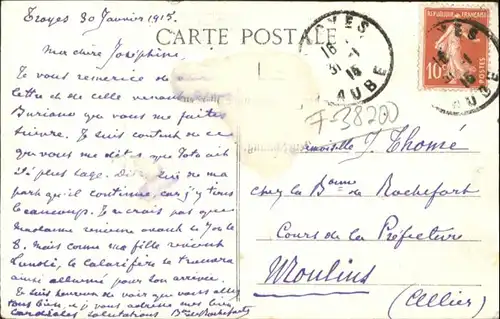 Troyes 30 Janvier 1915.
CARTE POSTALE
Ma chère Joséphine
Je vous remercie de
lettre et de celle
que vous me faites
suivre. Je suis content de ce
que vous me dit que Toto ait
été plus sage. Dit lui de ma
part qu'il continue, car j'y tiens
beaucoup. Je crois pas que
Madame revienne avant le
8. Mais comme ma fille revient
Lundi, le calorifère le trouvera
ainsi allumé pour son arrivée.
Je suis heureux de voir que vous allez
tous bien, et vous adresse mes
cordiales salutations Bne de Rochefort
TROYES
16
31-1
15
AUBE
REPUBLIQUE FRANÇAISE
10c
POSTES
F-38200
Mademoiselle J. Thomé
chez la Bonne de Rochefort
Cours de la Préfecture
Moulins
(Allier)